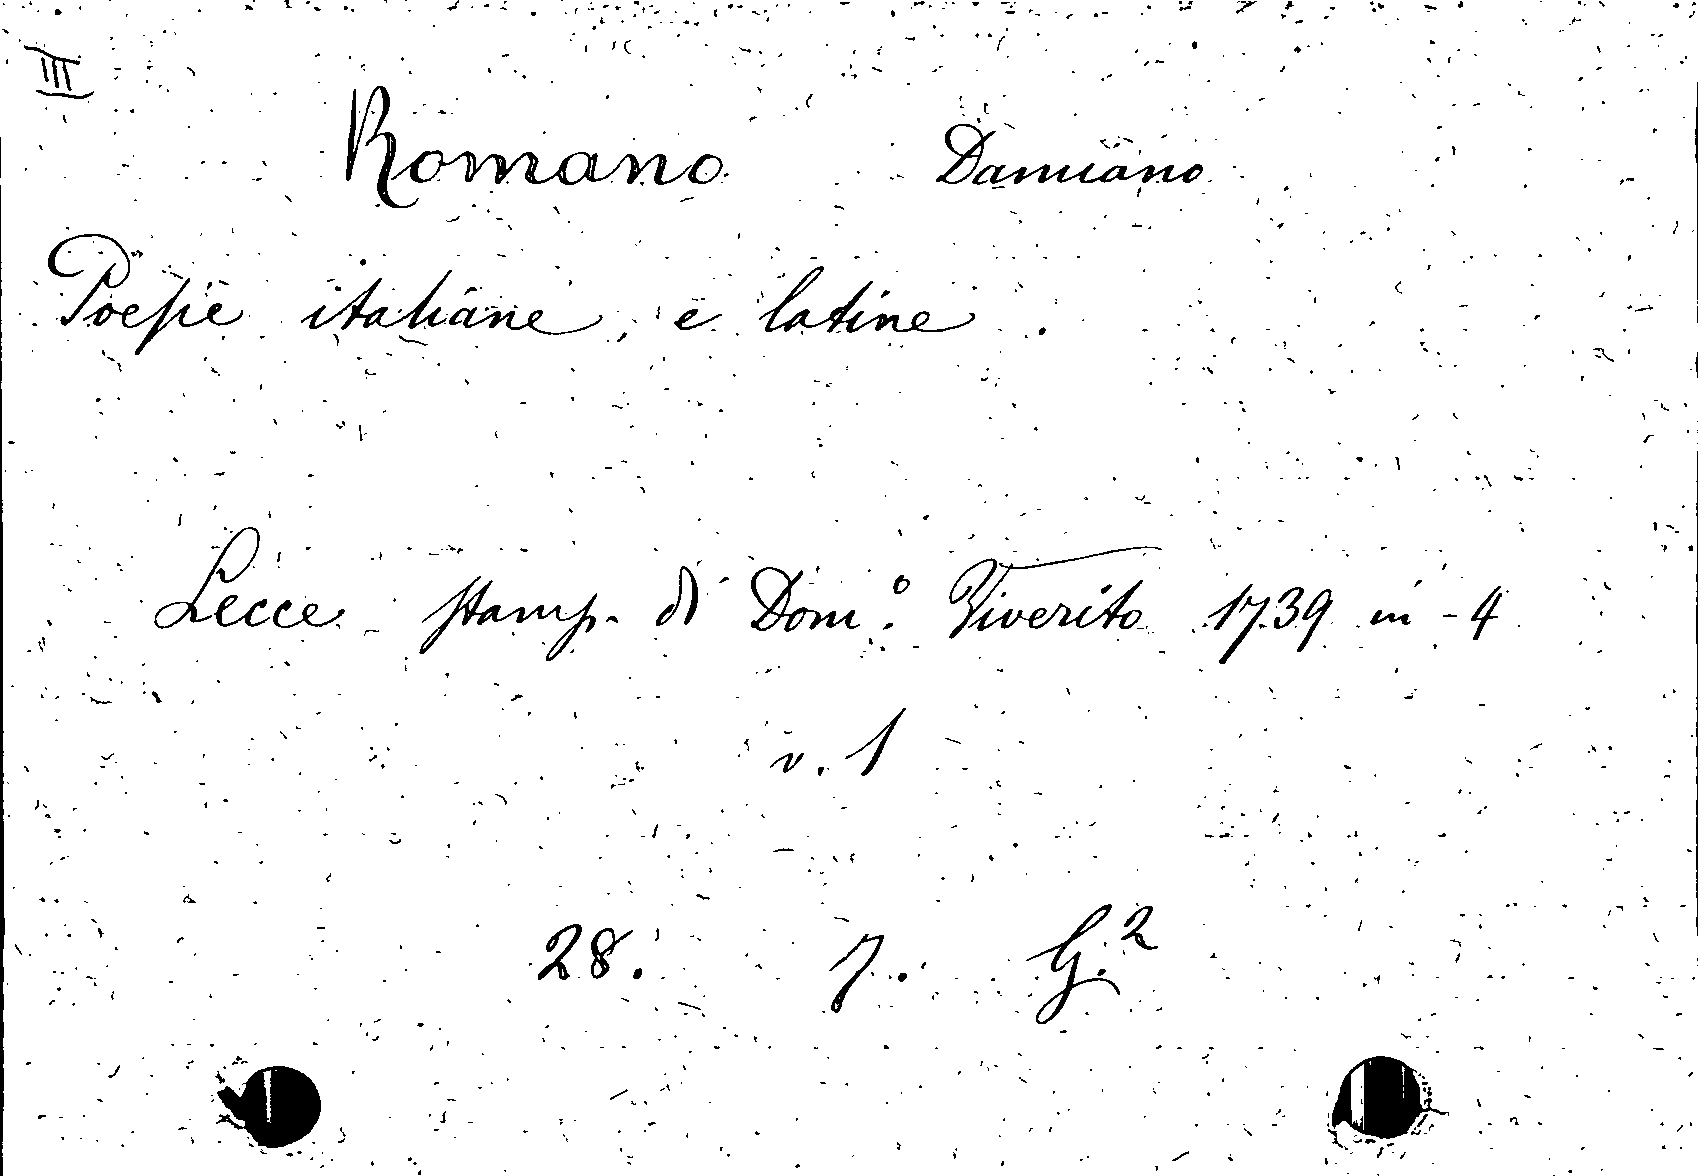 III
Romano Damiano
Poesie italiane, e latine.
Lecce - stamp. di Dom.º Viverito 1739 in-4
v. 1
28. 7. G.²